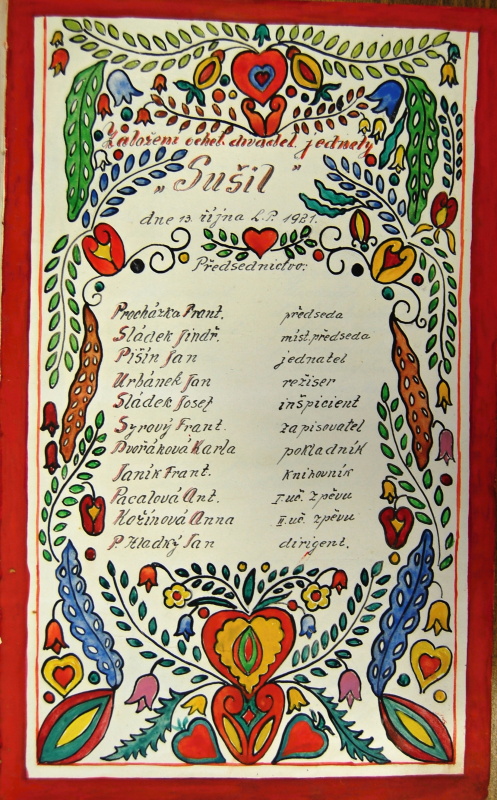 Založení ochot. divadel. jednoty
„Sušil"
dne 13. října L.P. 1921.
Předsednictvo:
Procházka Frant. předseda
Sládek Jindř. míst. předseda
Pišín Jan jednatel
Urbánek Jan režiser
Sládek Josef inšpicient
Syrový Frant. zapisovatel
Dvořáková Karla pokladník
Janík Frant. knihovník
Pacalová Ant. I. uč. zpěvu
Kořínová Anna II. uč. zpěvu
P. Hladký Jan dirigent.